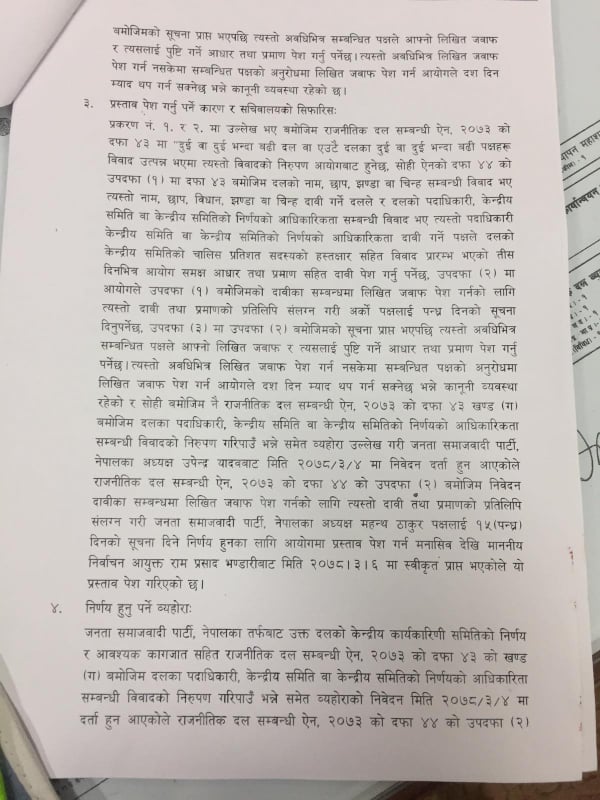 बमोजिमको सूचना प्राप्त भएपछि त्यस्तो अवधिभित्र सम्बन्धित पक्षले आफ्नो लिखित जवाफ
र त्यसलाई पुष्टि गर्ने आधार तथा प्रमाण पेश गर्नु पर्नेछ।त्यस्तो अवधिभित्र लिखित जवाफ
पेश गर्न नसकेमा सम्बन्धित पक्षको अनुरोधमा लिखित जवाफ पेश गर्न आयोगले दश दिन
म्याद थप गर्न सक्नेछ भन्ने कानूनी व्यवस्था रहेको छ।
३. प्रस्ताव पेश गर्नु पर्ने कारण र सचिवालयको सिफारिसः
प्रकरण नं. १. र २. मा उल्लेख भए बमोजिम राजनीतिक दल सम्बन्धी ऐन, २०७३ को
दफा ४३ मा "दुई वा दुई भन्दा बढी दल वा एउटै दलका दुई वा दुई भन्दा बढी पक्षहरू
विवाद उत्पन्न भएमा त्यस्तो विवादको निरुपण आयोगबाट हुनेछ, सोही ऐनको दफा ४४ को
उपदफा (१) मा दफा ४३ बमोजिम दलको नाम, छाप, झण्डा वा चिन्ह सम्बन्धी विवाद भए
त्यस्तो नाम, छाप, विधान, झण्डा वा चिन्ह दावी गर्ने दलले र दलको पदाधिकारी, केन्द्रीय
समिति वा केन्द्रीय समितिको निर्णयको आधिकारिकता सम्बन्धी विवाद भए त्यस्तो पदाधिकारी
केन्द्रीय समिति वा केन्द्रीय समितिको निर्णयको आधिकारिकता दावी गर्ने पक्षले दलको
केन्द्रीय समितिको चालिस प्रतिशत सदस्यको हस्तक्षार सहित विवाद प्रारम्भ भएको तीस
दिनभित्र आयोग समक्ष आधार तथा प्रमाण सहित दावी पेश गर्नु पर्नेछ, उपदफा (२) मा
आयोगले उपदफा (१) बमोजिमको दाबीका सम्बन्धमा लिखित जवाफ पेश गर्नको लागि
त्यस्तो दावी तथा प्रमाणको प्रतिलिपि संलग्न गरी अर्को पक्षलाई पन्ध्र दिनको सूचना
दिनुपर्नेछ, उपदफा (३) मा उपदफा (२) बमोजिमको सूचना प्राप्त भएपछि त्यस्तो अवधिभित्र
सम्बन्धित पक्षले आफ्नो लिखित जवाफ र त्यसलाई पुष्टि गर्ने आधार तथा प्रमाण पेश गर्नु
पर्नेछ।त्यस्तो अवधिभित्र लिखित जवाफ पेश गर्न नसकेमा सम्बन्धित पक्षको अनुरोधमा
लिखित जवाफ पेश गर्न आयोगले दश दिन म्याद थप गर्न सक्नेछ भन्ने कानूनी व्यवस्था
रहेको र सोही बमोजिम नै राजनीतिक दल सम्बन्धी ऐन, २०७३ को दफा ४३ खण्ड (ग)
बमोजिम दलका पदाधिकारी, केन्द्रीय समिति वा केन्द्रीय समितिको निर्णयको आधिकारिकता
सम्बन्धी विवादको निरुपण गरिपाउँ भन्ने समेत व्यहोरा उल्लेख गरी जनता समाजवादी पार्टी,
नेपालका अध्यक्ष उपेन्द्र यादवबाट मिति २०७८/३/४ मा निवेदन दर्ता हुन आएकोले
राजनीतिक दल सम्बन्धी ऐन, २०७३ को दफा ४४ को उपदफा (२) बमोजिम निवेदन
दावीका सम्बन्धमा लिखित जवाफ पेश गर्नको लागि त्यस्तो दावी तथा प्रमाणको प्रतिलिपि
संलग्न गरी जनता समाजवादी पार्टी, नेपालका अध्यक्ष महन्थ ठाकुर पक्षलाई १५(पन्ध्र)
दिनको सूचना दिने निर्णय हुनका लागि आयोगमा प्रस्ताव पेश गर्न मनासिव देखि माननीय
निर्वाचन आयुक्त राम प्रसाद भण्डारीबाट मिति २०७८।३।६ मा स्वीकृत प्राप्त भएकोले यो
प्रस्ताव पेश गरिएको छ।
४. निर्णय हुनु पर्ने व्यहोराः
जनता समाजवादी पार्टी, नेपालका तर्फबाट उक्त दलको केन्द्रीय कार्यकारिणी समितिको निर्णय
र आवश्यक कागजात सहित राजनीतिक दल सम्बन्धी ऐन, २०७३ को दफा ४३ को खण्ड
(ग) बमोजिम दलका पदाधिकारी, केन्द्रीय समिति वा केन्द्रीय समितिको निर्णयको आधिकारिता
सम्बन्धी विवादको निरुपण गरिपाउँ भन्ने समेत व्यहोराको निवेदन मिति २०७८/३/४ मा
दर्ता हुन आएकोले राजनीतिक दल सम्बन्धी ऐन, २०७३ को दफा ४४ को उपदफा (२)